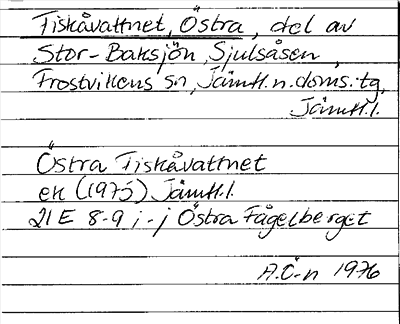 Fiskåvattnet, Östra, del av
Stor-Baksjön, Sjulsåsen,
Frostvikens sn, Jämtl.n.doms.tg,
Jämtl.l.
Östra Fiskåvattnet
ek (1975) Jämtl.l.
21E 8-9 i-j Östra Fågelberget
A.Ö-n 1976